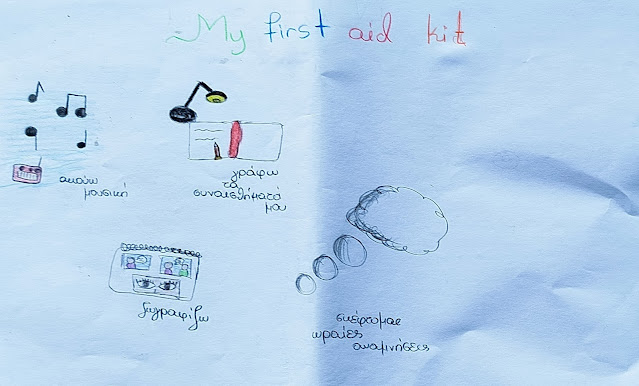 My first aid kit
ακούω
μουσική
γράφω
τα
συναισθήματά
μου
ζωγραφίζω
σκέφτομαι
ωραίες
αναμνήσεις